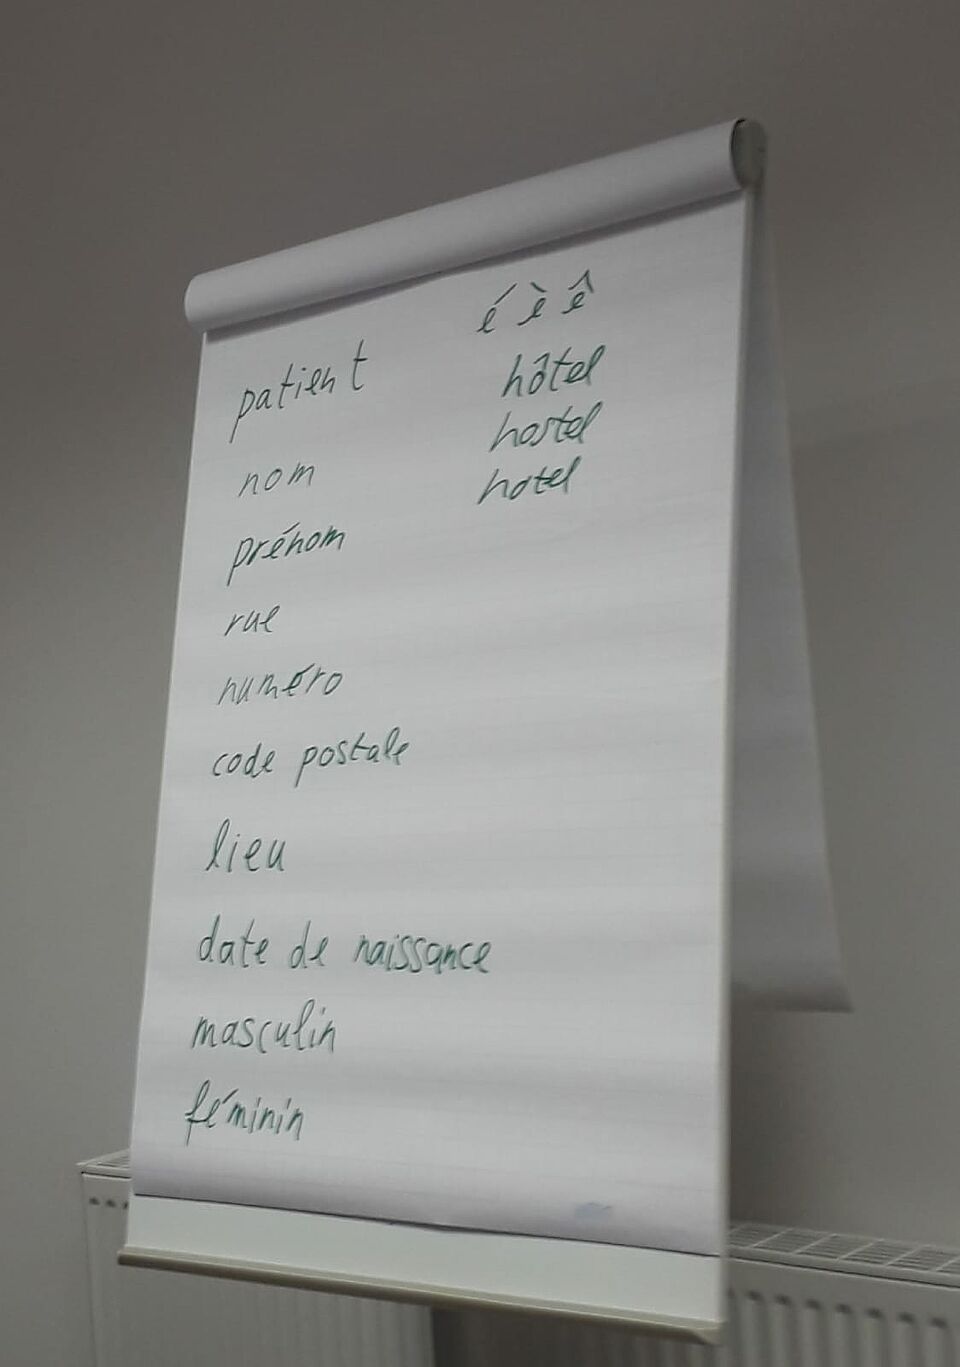 é è ê
hôtel
hostel
hotel
patient
nom
prénom
rue
numéro
code postale
lieu
date de naissance
masculin
féminin